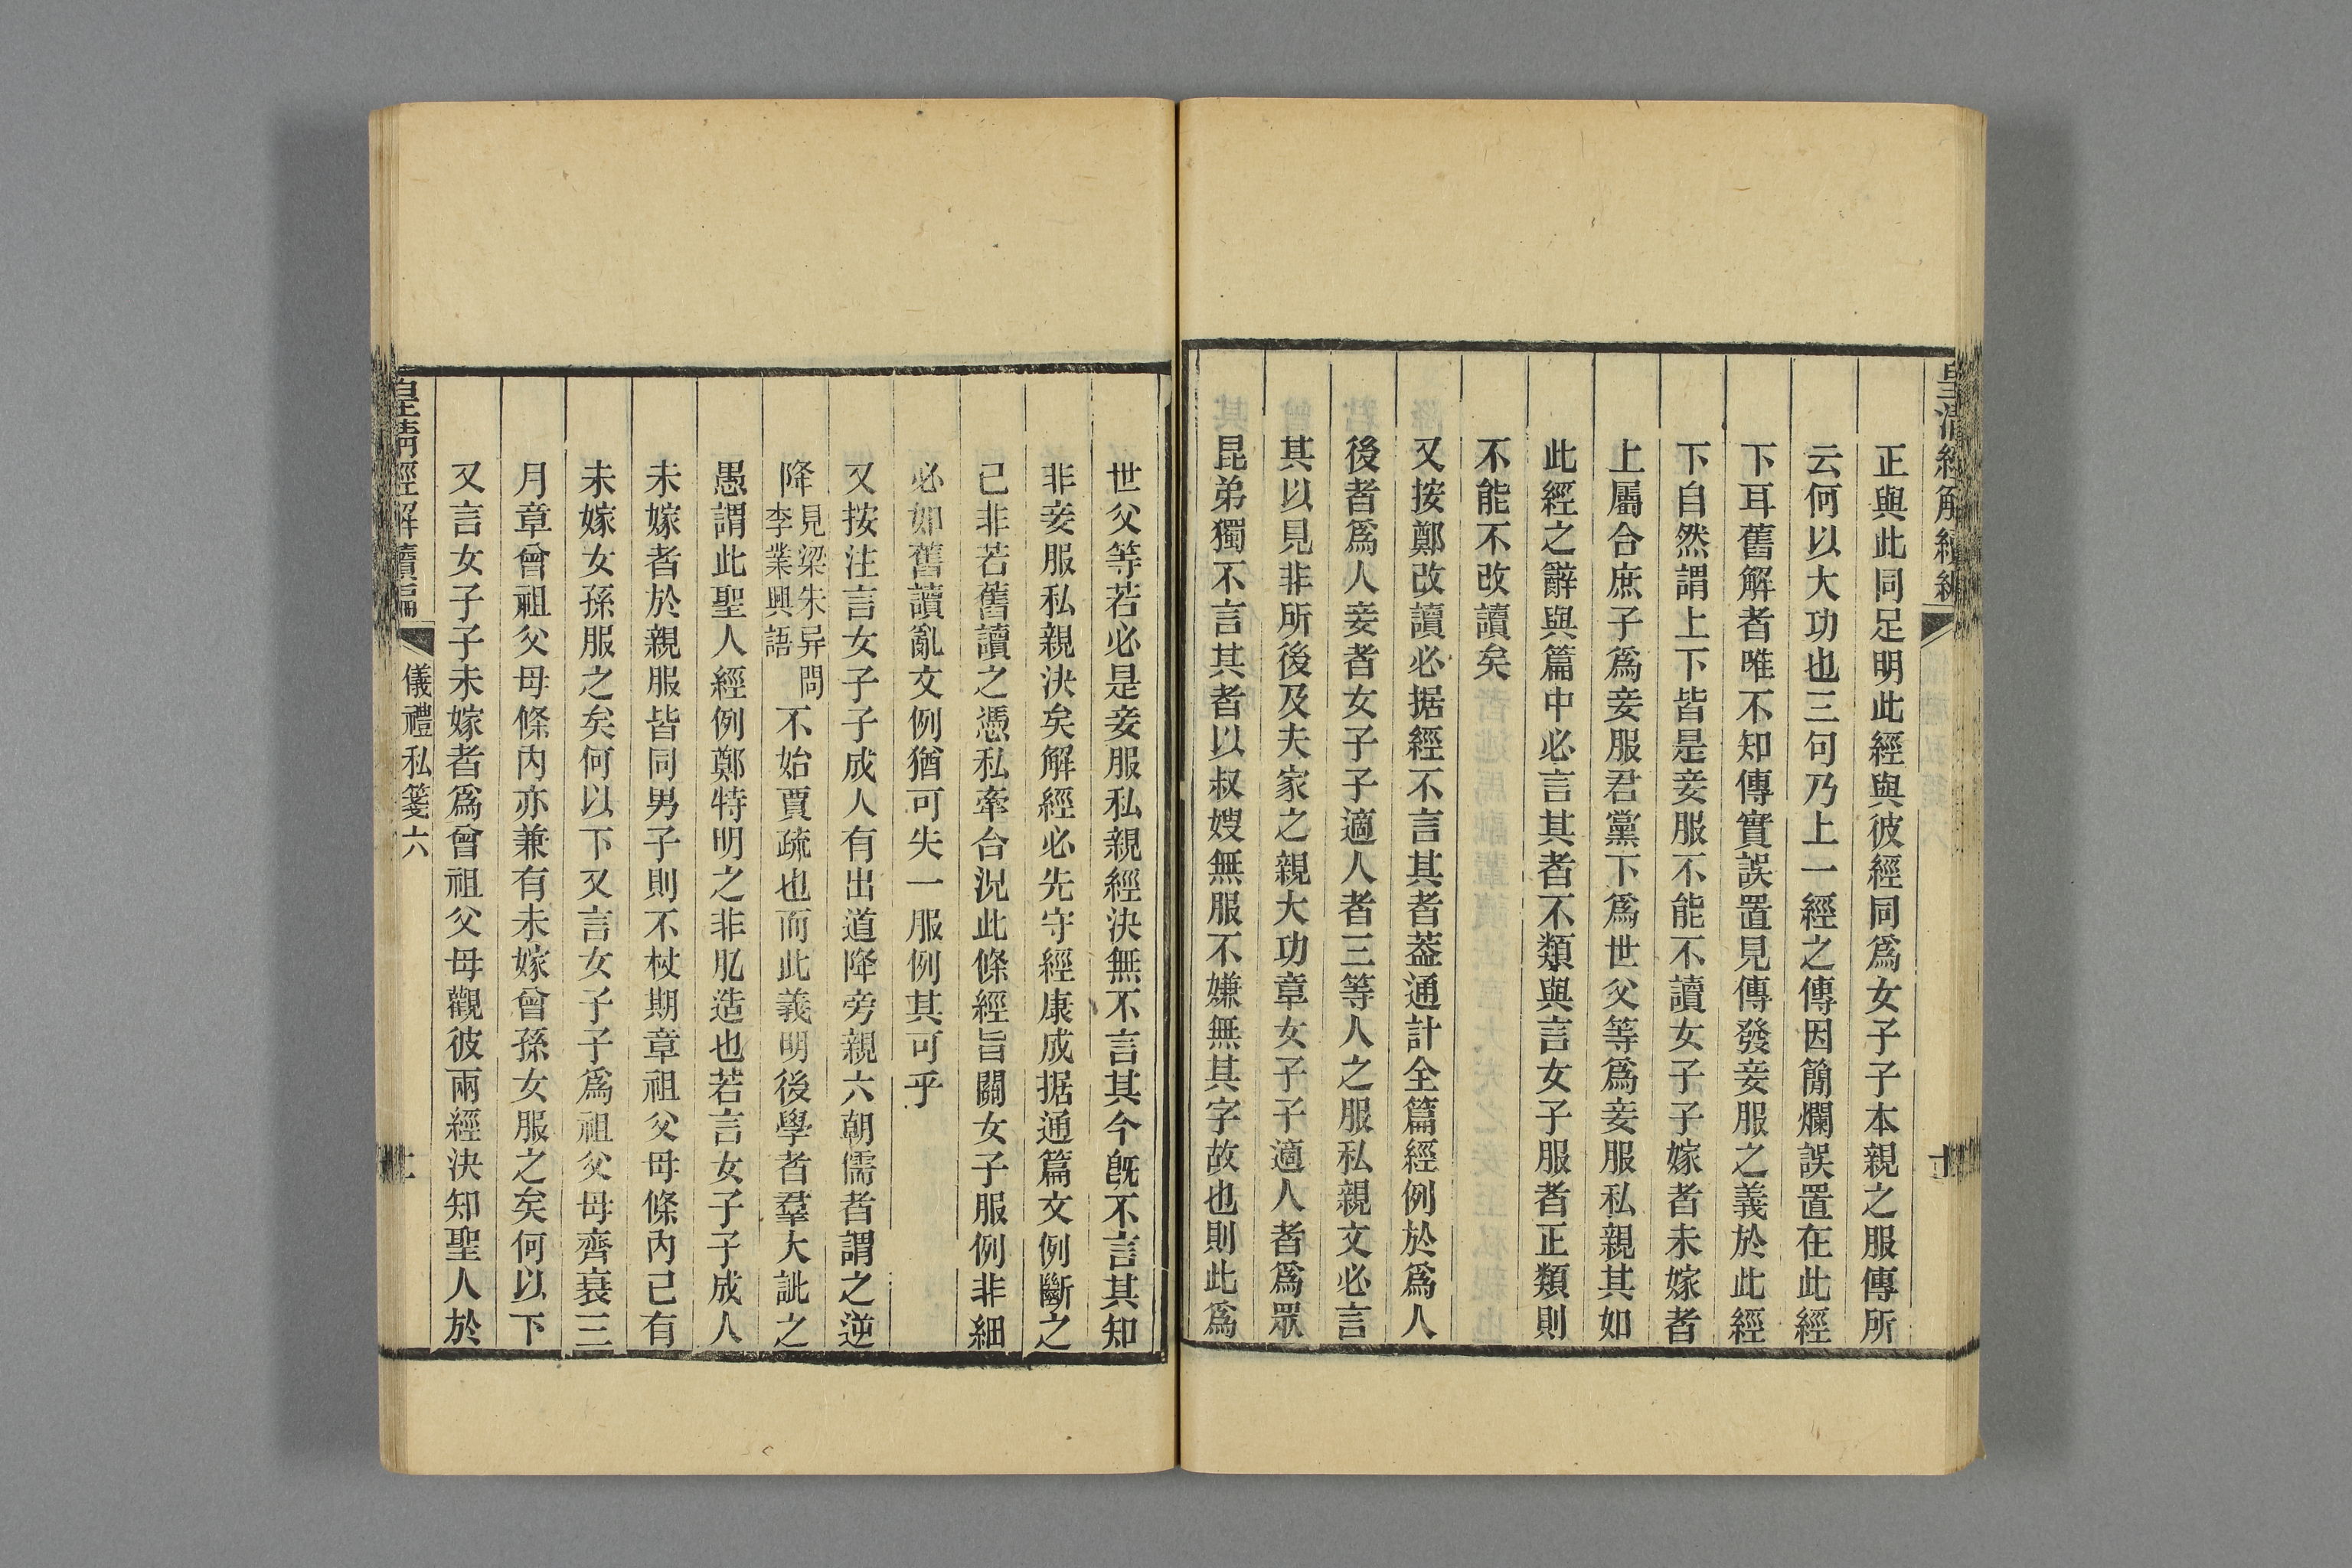 皇清經解續編
正與此同足明此經與彼經同爲女子子本親之服傳所
云何以大功也三句乃上一經之傳因簡爛誤置在此經
下耳舊解者唯不知傳實誤置見傳發妾服之義於此經
下自然謂上下皆是妾服不能不讀女子子嫁者未嫁者
上屬合庶子爲妾服君黨下爲世父等爲妾服私親其如
此經之辭與篇中必言其者不類與言女子服者正類則
不能不改讀矣
又按鄭改讀必据經不言其者葢通計全篇經例於爲人
後者爲人妾者女子子適人者三等人之服私親文必言
其以見非所後及夫家之親大功章女子子適人者爲眾
昆弟獨不言其者以叔嫂無服不嫌無其字故也則此爲
世父等若必是妾服私親經決無不言其今旣不言其知
非妾服私親決矣解經必先守經康成据通篇文例斷之
己非若舊讀之憑私牽合況此條經旨關女子服例非細
必如舊讀亂文例猶可失一服例其可乎
又按注言女子子成人有出道降旁親六朝儒者謂之逆
降見梁朱异問李業興語不始賈疏也而此義明後學者羣大訿之
愚謂此聖人經例鄭特明之非肊造也若言女子子成人
未嫁者於親服皆同男子則不杖期章祖父母條內己有
未嫁女孫服之矣何以下又言女子子爲祖父母齊衰三
月章曾祖父母條內亦兼有未嫁曾孫女服之矣何以下
又言女子子未嫁者爲曾祖父母觀彼兩經決知聖人於
皇清經解續編
儀禮私箋六